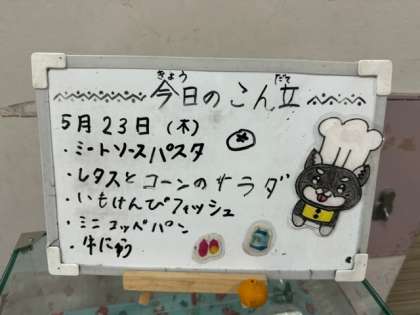 きょう だて
今日のこん立
5月23日(木)
・ミートソースパスタ
・レタスとコーンのサラダ
・いもけんぴフィッシュ
・ミニコッペパン
・牛にゅう